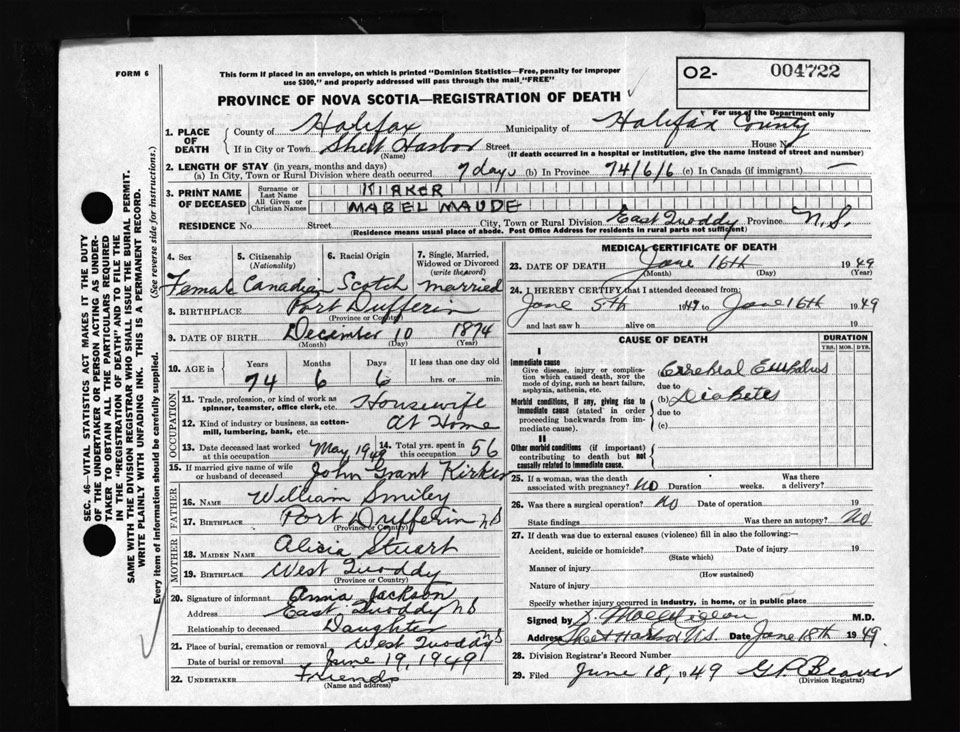 FORM 6
This form if placed in an envelope, on which is printed "Dominion Statistics—Free, penalty for improper
use $300," and properly addressed will pass through the mail "FREE"
O2- 004722
For use of the Department only
PROVINCE OF NOVA SCOTIA—REGISTRATION OF DEATH
1. PLACE OF DEATH { County of Halifax Municipality of Halifax County
If in City or Town Sheet Harbor Street House No
(Name) (If death occurred in a hospital or institution, give the name instead of street and number)
2. LENGTH OF STAY (in years, months and days)
(a) In City, Town or Rural Division where death occurred 7 days (b) In Province 74/6/6 (c) In Canada (if immigrant) —
3. PRINT NAME OF DECEASED { Surname or Last Name KIRKER
All Given or Christian Names MABEL MAUDE
RESIDENCE No. Street City, Town or Rural Division East Quoddy Province N.S.
(Residence means usual place of abode. Post Office Address for residents in rural parts not sufficient)
4. Sex Female
5. Citizenship (Nationality) Canadian
6. Racial Origin Scotch
7. Single, Married, Widowed or Divorced (write the word) Married
8. BIRTHPLACE Port Dufferin
(Province or Country)
9. DATE OF BIRTH December 10 1874
(Month) (Day) (Year)
10. AGE in { Years Months Days If less than one day old
74 6 6 hrs. or min.
OCCUPATION
11. Trade, profession, or kind of work as spinner, teamster, office clerk, etc. Housewife
12. Kind of industry or business, as cotton-mill, lumbering, bank, etc. At Home
13. Date deceased last worked at this occupation May 1949
14. Total yrs. spent in this occupation 56
15. If married give name of wife or husband of deceased John Grant Kirker
FATHER
16. NAME William Smiley
17. BIRTHPLACE Port Dufferin NS
(Province or Country)
MOTHER
18. MAIDEN NAME Alicia Stuart
19. BIRTHPLACE West Quoddy
(Province or Country)
20. Signature of informant Anna Jackson
Address East Quoddy NS
Relationship to deceased Daughter
21. Place of burial, cremation or removal West Quoddy NS
Date of burial or removal June 19, 1949
22. UNDERTAKER Friends
(Name and address)
MEDICAL CERTIFICATE OF DEATH
23. DATE OF DEATH June 16th 1949
(Month) (Day) (Year)
24. I HEREBY CERTIFY that I attended deceased from:
June 5th 1949 to June 16th 1949
and last saw h alive on 19
CAUSE OF DEATH
DURATION
YRS. MOS. DYS.
I
Immediate cause
Give disease, injury or complication which caused death, nor the mode of dying, such as heart failure, asphyxia, asthenia, etc.
Cerebral Embolus
due to
Morbid conditions, if any, giving rise to immediate cause (stated in order proceeding backwards from immediate cause).
(b) Diabetes
due to
(c)
II
Other morbid conditions (if important) contributing to death but not causally related to immediate cause.
25. If a woman, was the death associated with pregnancy? No Duration weeks. Was there a delivery?
26. Was there a surgical operation? No Date of operation 19
State findings Was there an autopsy? No
27. If death was due to external causes (violence) fill in also the following:—
Accident, suicide or homicide? Date of injury 19
(State which)
Manner of injury
(How sustained)
Nature of injury
Specify whether injury occurred in industry, in home, or in public place
Signed by M.D.
Address Sheet Harbor N.S. Date June 18th 1949.
28. Division Registrar's Record Number
29. Filed June 18, 1949 G.P. Beaver
(Division Registrar)
SEC. 46—VITAL STATISTICS ACT MAKES IT THE DUTY
OF THE UNDERTAKER OR PERSON ACTING AS UNDER-
TAKER TO OBTAIN ALL THE PARTICULARS REQUIRED
IN THE "REGISTRATION OF DEATH" AND TO FILE THE
SAME WITH THE DIVISION REGISTRAR WHO SHALL ISSUE THE BURIAL PERMIT.
WRITE PLAINLY WITH UNFADING INK. THIS IS A PERMANENT RECORD.
Every item of information should be carefully supplied. (See reverse side for instructions.)